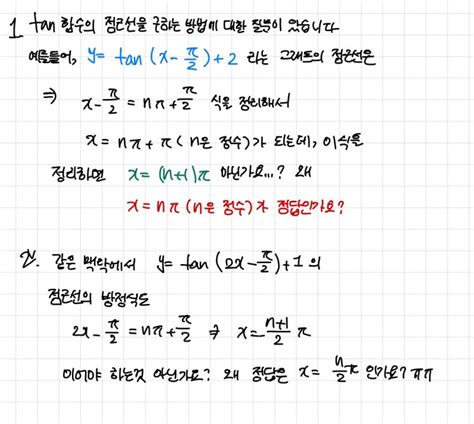 1. tan 함수의 점근선을 구하는 방법에 대한 질문이 있습니다
예를들어, y = tan (x - π/2) + 2 라는 그래프의 점근선은
⇒ x - π/2 = nπ + π/2 식을 정리해서
x = nπ + π ( n은 정수)가 되는데, 이식을
정리하면 x = (n+1)π 아닌가요...? 왜
x = nπ (n은 정수)가 정답인가요?
2. 같은 맥락에서 y = tan (2x - π/2) + 1 의
점근선의 방정식도
2x - π/2 = nπ + π/2 ⇒ x = (n+1)/2 π
이어야 하는것 아닌가요? 왜 정답은 x = n/2 π 인가요? ㅠㅠ